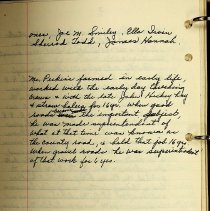 ones, Joe M. Smiley, Ella Dean
Sherod Todd, James Hannah.
Mr. Perkins farmed in early life,
worked with the early day threshing
crews & with the late John Hickey hay
& straw baler for 16 yrs. when good
roads was the important subject,
he was made superintendent of
what at that time was known as
the county road, & held that job 16 yrs
when gravel roads he was Superintendent
of that work for 6 yrs.